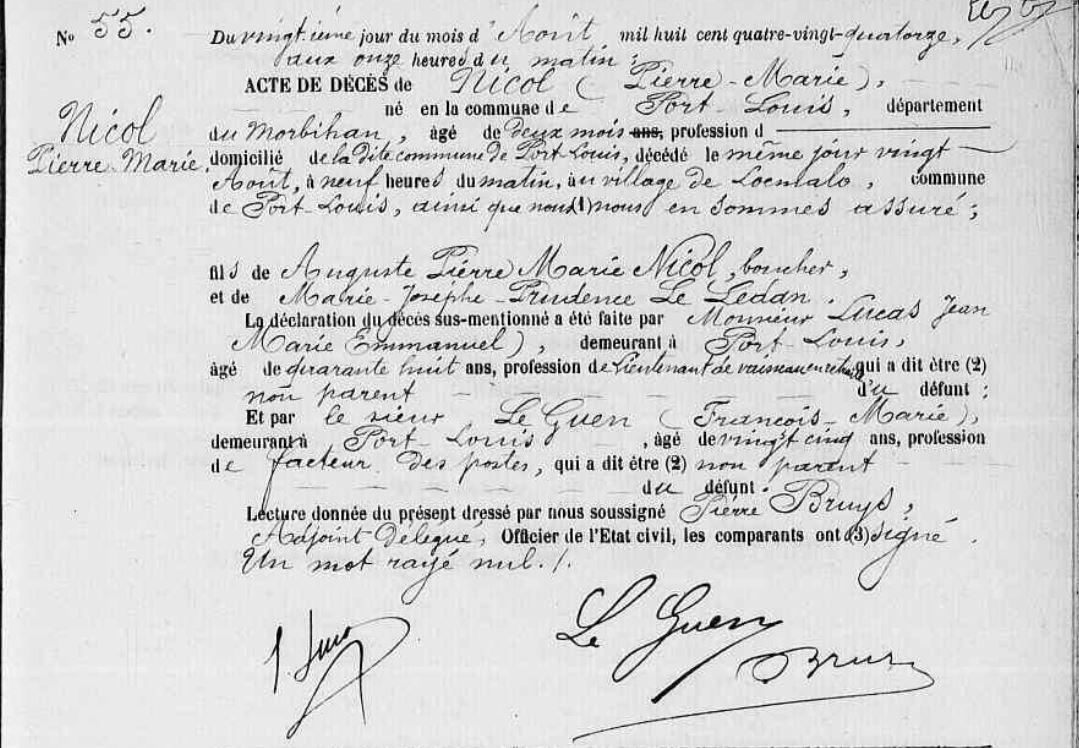 No 55.
Du vingtième jour du mois d'Août mil huit cent quatre-vingt-quatorze,
aux onze heures du matin ;
ACTE DE DÉCÈS de Nicol (Pierre-Marie),
né en la commune de Port-Louis, département
Nicol
Pierre-Marie.
du Morbihan, âgé de deux mois ans, profession d
domicilié de la dite commune de Port-Louis, décédé le même jour vingt
Août, à neuf heures du matin, au village de Locmalo, commune
de Port-Louis, ainsi que nous (1) nous en sommes assuré ;
fils de Auguste Pierre Marie Nicol, boucher,
et de Marie-Josèphe-Prudence Le Ledan.
La déclaration du décès sus-mentionné a été faite par Monsieur Lucas Jean
Marie Emmanuel), demeurant à Port-Louis,
âgé de quarante huit ans, profession de Lieutenant de vaisseau en retraite qui a dit être (2)
non parent du défunt ;
Et par le sieur Le Guen (François-Marie),
demeurant à Port-Louis, âgé de vingt cinq ans, profession
de facteur des postes, qui a dit être (2) non parent
du défunt.
Lecture donnée du présent dressé par nous soussigné Pierre Bruys,
Adjoint Délégué, Officier de l'Etat civil, les comparants ont (3) signé.
Un mot rayé nul. /.
Le Guen
Bruys